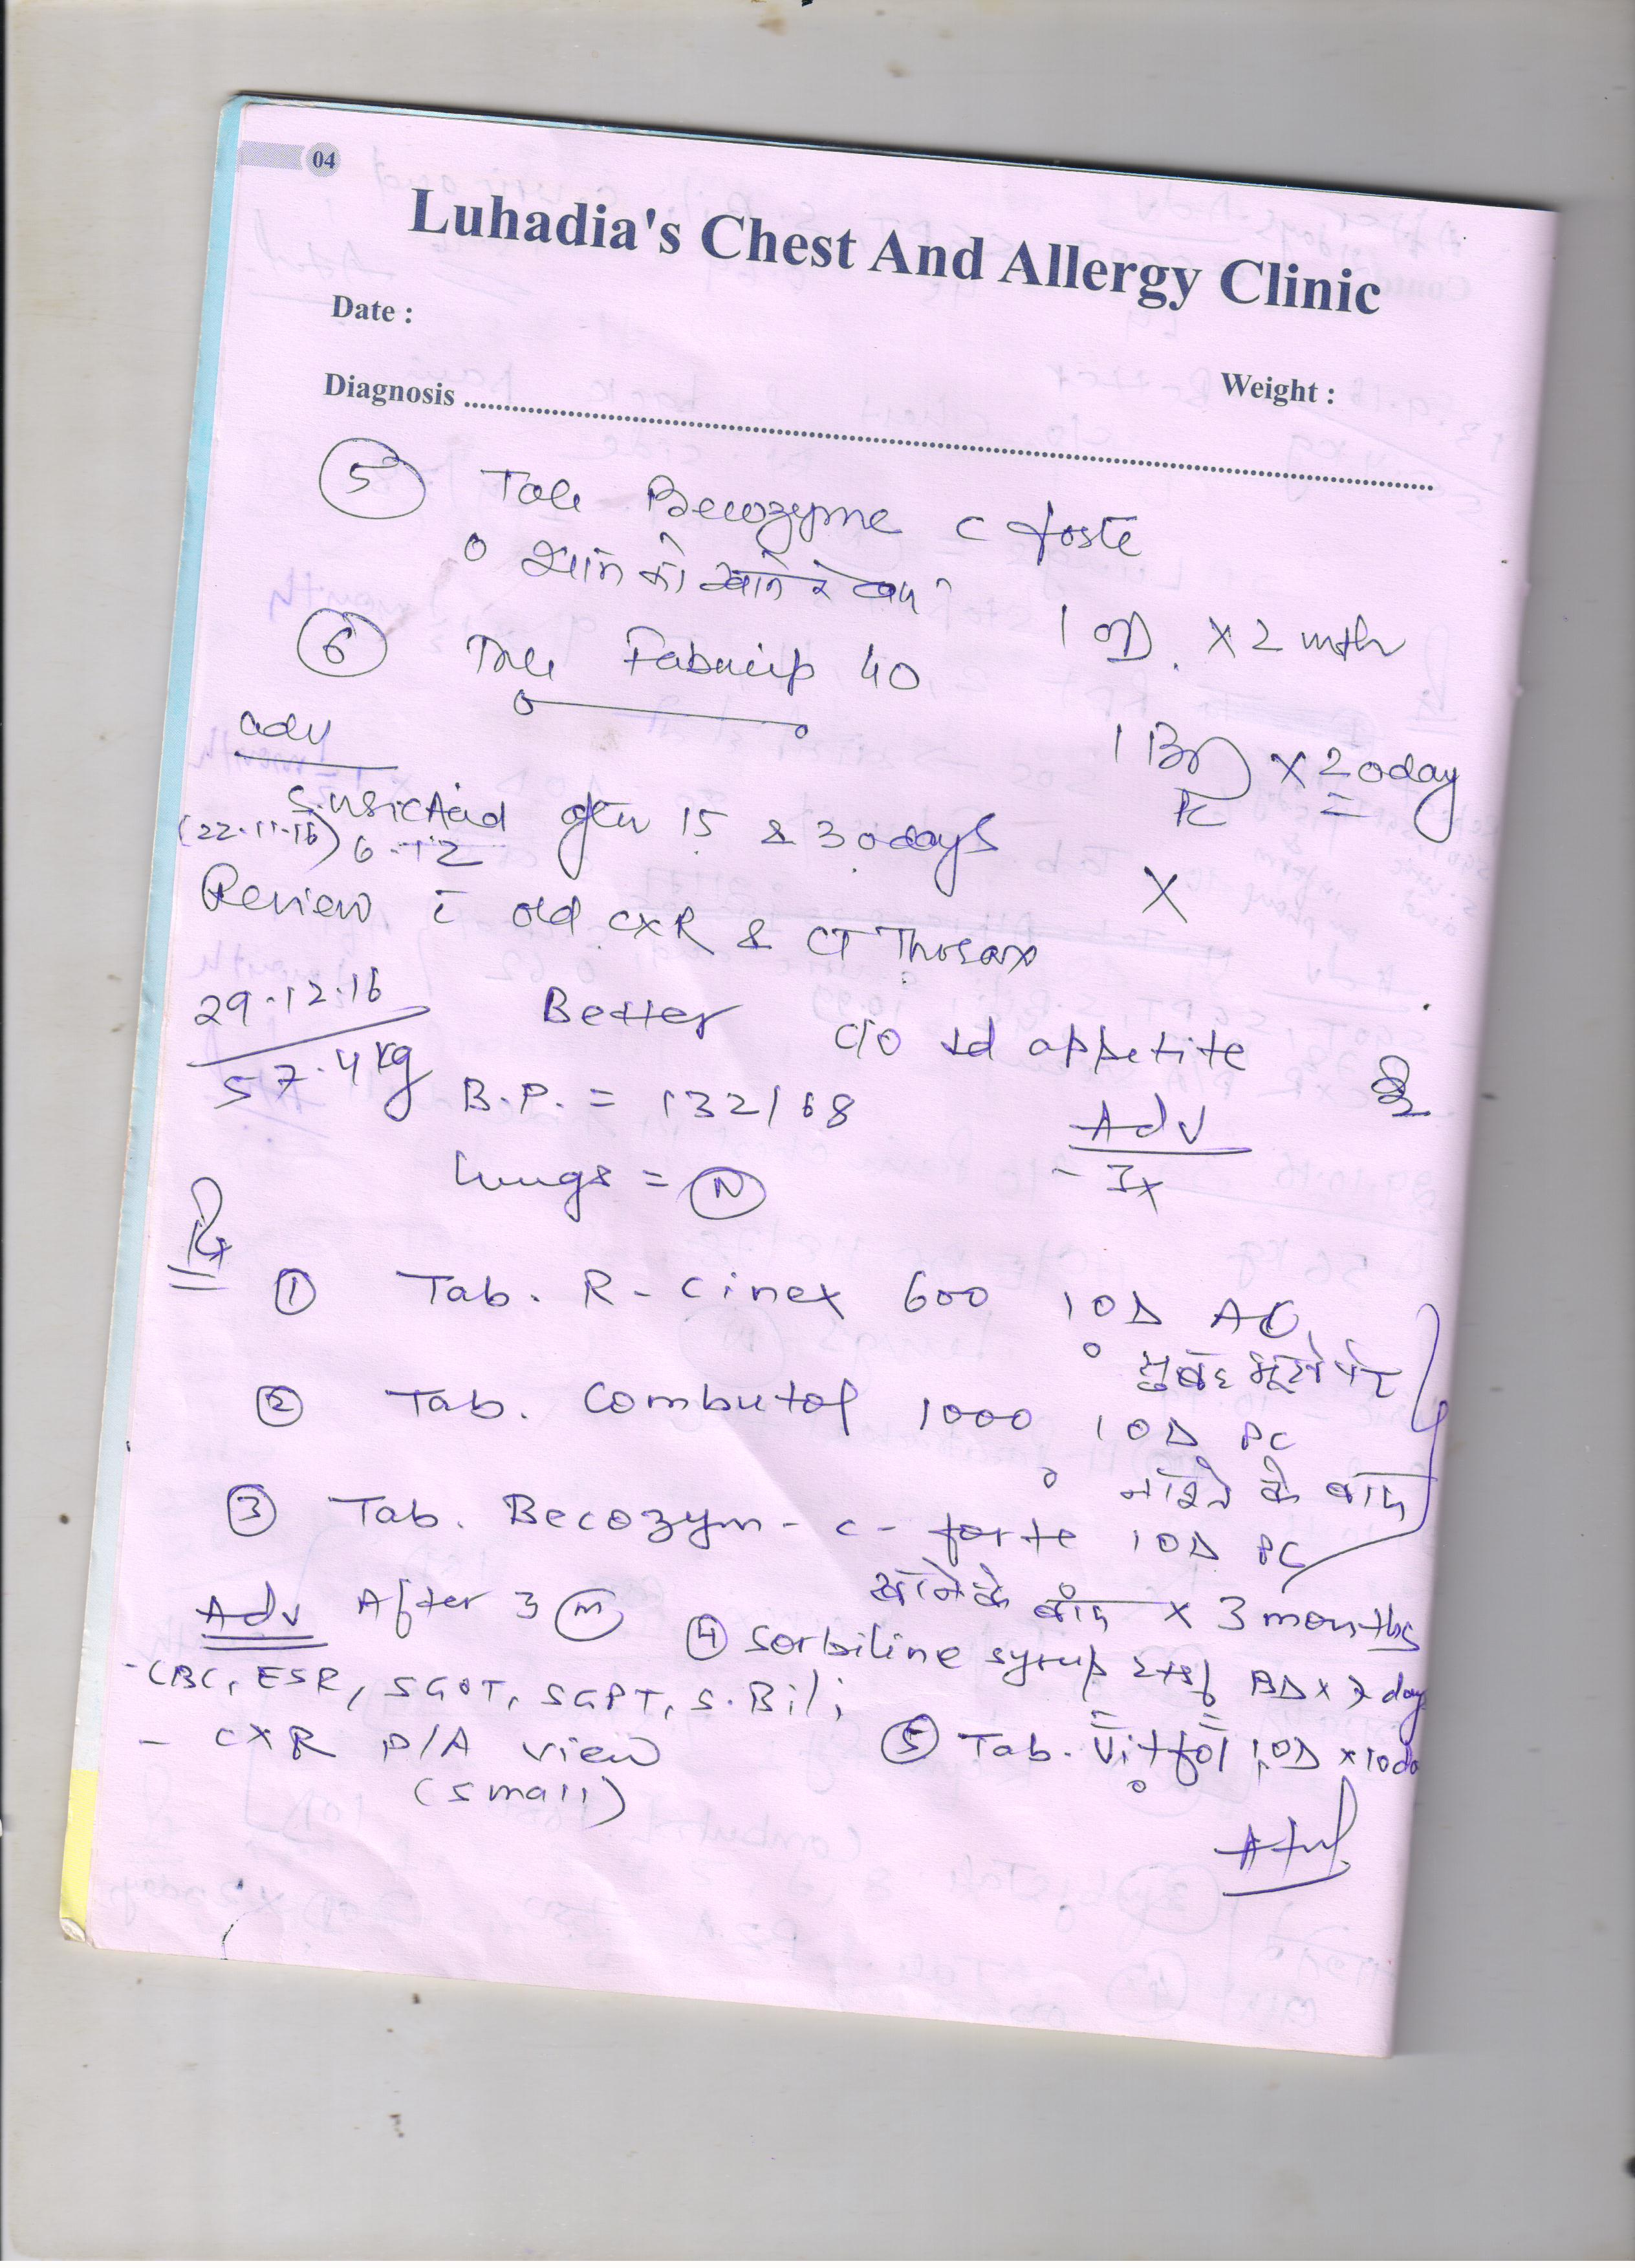 04
Luhadia's Chest And Allergy Clinic
Date :
Diagnosis Weight :
5 Tab Becozyme C forte
शाम को खाने के बाद 1 OD. x 2 mth
6 Tab 40 1 BD x 20 day
PC
adv
S. Uric Acid after 15 & 30 days
(22-11-16) 6-12 X
Review c̄ old CXR & CT Thorax
29.12.16 Better c/o ↓d appetite
57.4 kg B.P. = 132/68 Adv
Lungs = N - Ix
Rx
1 Tab. R-Cinex 600 1 OD AC
सुबह भूखे पेट
2 Tab. Combutol 1000 1 OD PC
नाश्ते के बाद
3 Tab. Becozym-c-forte 1 OD PC
खाने के बाद x 3 months
Adv After 3 m 4 Sorbiline syrup 2 tsf BD x 7 day
- CBC, ESR, SGOT, SGPT, S. Bili 5 Tab. Vitfol 1 OD x 10 da
- CXR P/A view
(small)